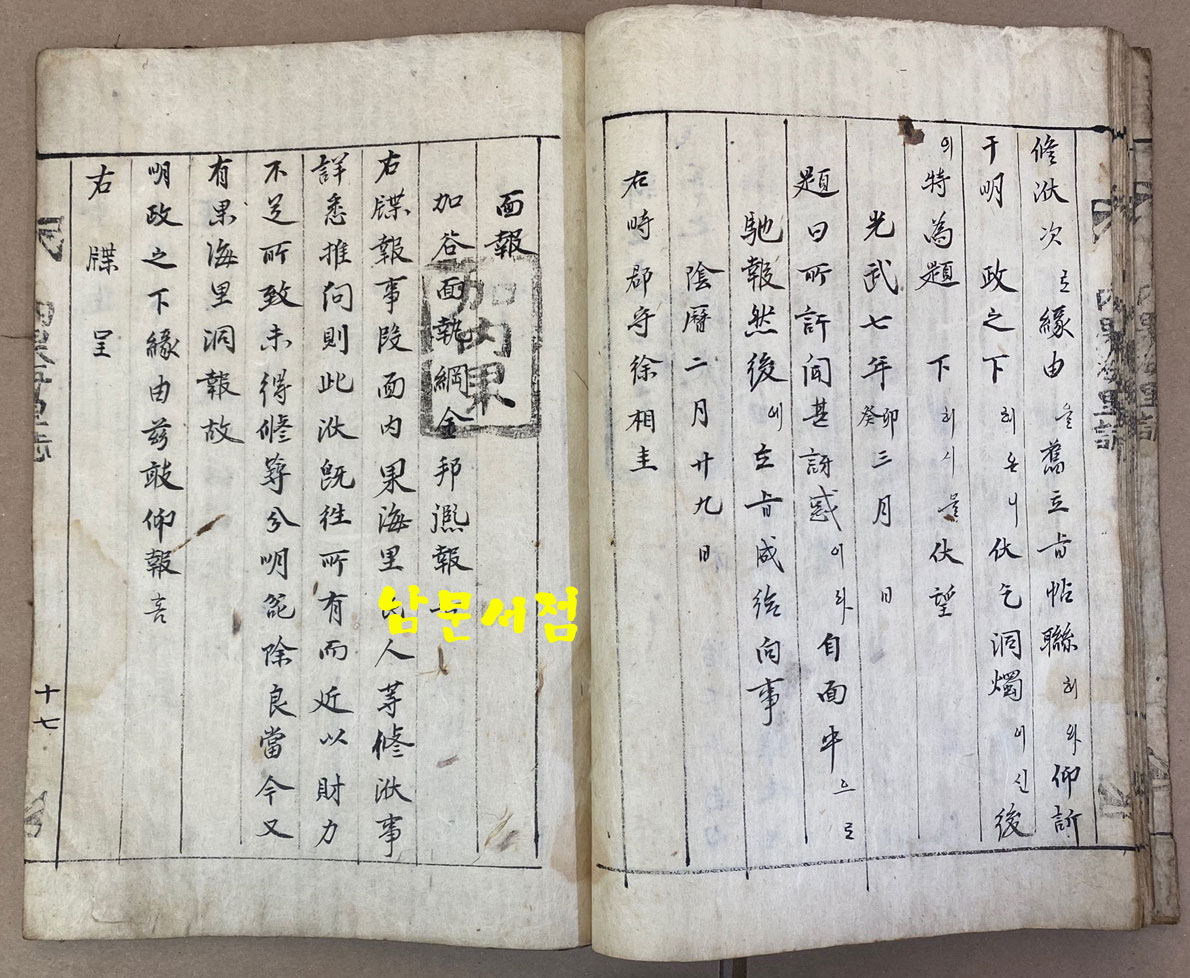 修洑次로緣由을舊立旨帖聯히와仰訴
于明 政之下히온니伏乞洞燭이신後
의特爲題 下히시믈伏望
光武七年癸卯三月 日
題曰所訴聞甚訝惑이와自面中으로
馳報然後에立旨成給向事
陰曆二月廿九日
右時郡守徐相圭
面報
加谷面執綱金邦 報
右牒報事段面內果海里民人等修洑事
詳悉推问則此洑旣往所有而近以財力
不足所致未得修築分明 除良當今又
有果海里洞報故
明政之下緣由玆敢仰報
右 牒 呈
十七
加內果
남문서점